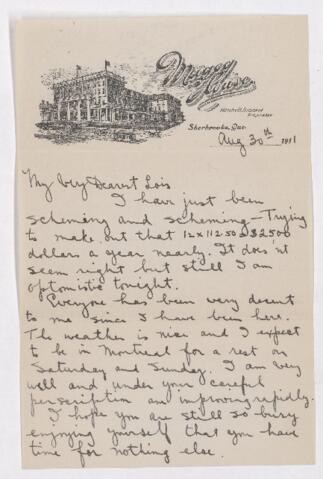 Magog
House
Sherbrooke, Que.
Aug 30th 1911
My Very Dearest Lois
I have just been
scheming and scheming - Trying
to make out that 12 x 112.50 = $2500
dollars a year nearly. It does'nt
seem right but still I am
optomistic tonight.
Everyone has been very decent
to me since I have been here.
The weather is nice and I expect
to be in Montreal for a rest on
Saturday and Sunday. I am very
well and under your careful
perscription am improving rapidly.
I hope you are still so busy
enjoying yourself that you have
time for nothing else.